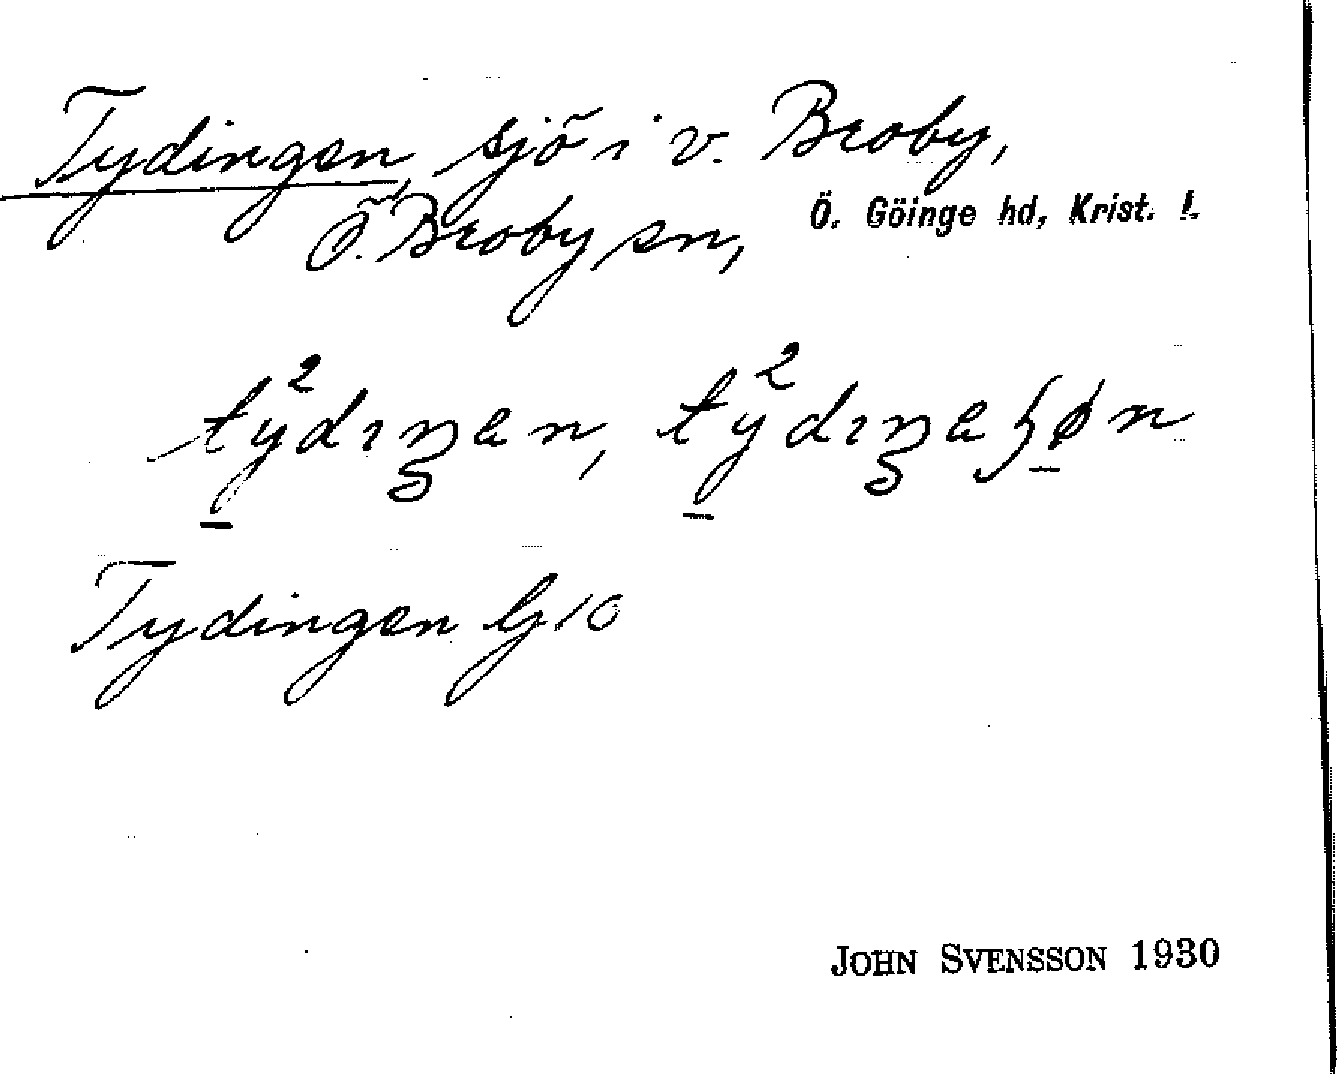 Tydingen, sjö i v. Broby,
Ö. Broby sn, Ö. Göinge hd, Krist. l.
Tydingen G 10
JOHN SVENSSON 1930